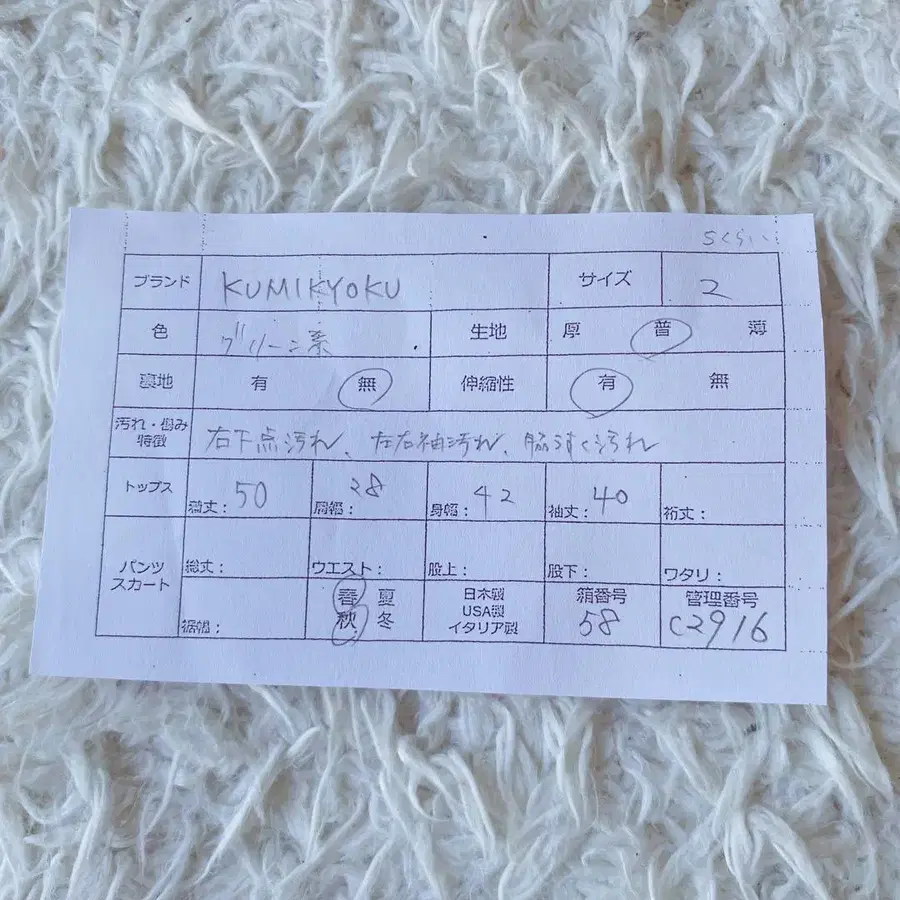 さくらい
ブランド KUMIKYOKU サイズ 2
色 グリーン系 生地 厚 普 薄
裏地 有 無 伸縮性 有 無
汚れ・傷み
特徴
右下点汚れ、左右袖汚れ、脇うすく汚れ
トップス 着丈：50 肩幅：38 身幅：42 袖丈：40 裄丈：
パンツ
スカート
総丈： ウエスト： 股上： 股下： ワタリ：
裾幅：
春 夏
秋 冬
日本製
USA製
イタリア製
箱番号
58
管理番号
C2916